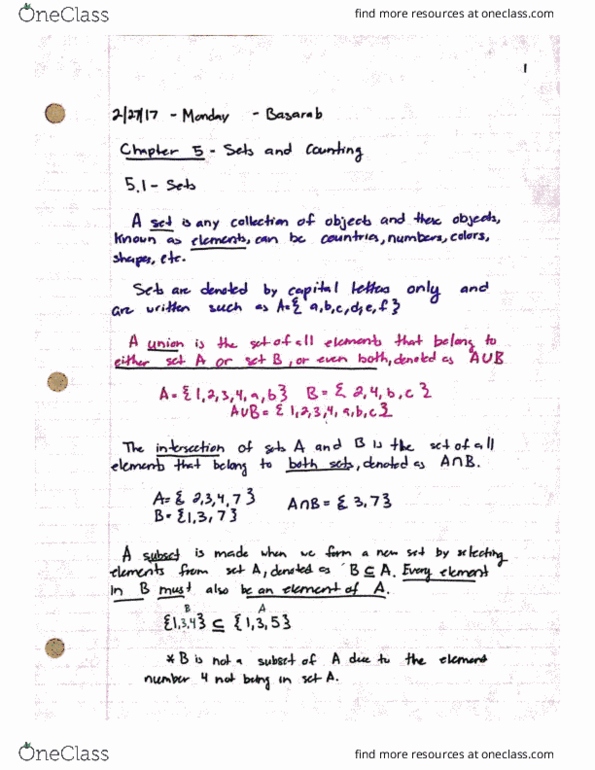 OneClass
find more resources at oneclass.com
1
2/27/17 - Monday - Basarab
Chapter 5 - Sets and Counting
5.1 - Sets
A set is any collection of objects and these objects,
known as elements, can be countries, numbers, colors,
shapes, etc.
Sets are denoted by capital letters only and
are written such as A={ a,b,c,d,e,f }
A union is the set of all elements that belong to
either set A or set B, or even both, denoted as A∪B
A={1,2,3,4,a,b} B={ 2,4,b,c }
A∪B = { 1,2,3,4,a,b,c }
The intersection of sets A and B is the set of all
elements that belong to both sets, denoted as A∩B.
A={ 2,3,4,7 }
B={1,3,7}
A∩B = { 3,7 }
A subset is made when we form a new set by selecting
elements from set A, denoted as B ⊆ A. Every element
in B must also be an element of A.
B A
{1,3,4} ⊆ {1,3,5}
*B is not a subset of A due to the element
number 4 not being in set A.
OneClass
find more resources at oneclass.com